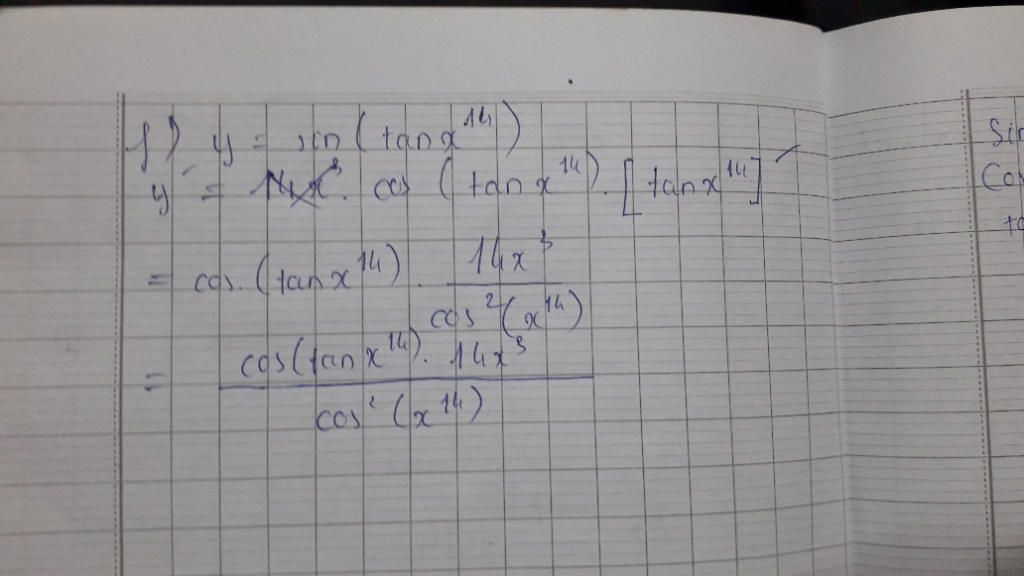 f) y = sin(tanx¹⁴)
y' = 14x³. cos (tanx¹⁴).[tanx¹⁴]'
= cos.(tanx¹⁴) . 14x³
cos²(x¹⁴)
= cos(tanx¹⁴). 14x³
cos²(x¹⁴)
Sin
Cos